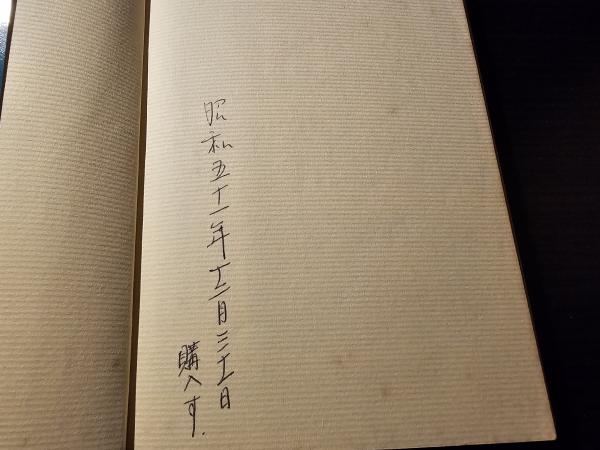 昭和五十一年十二月三十一日
購入す.